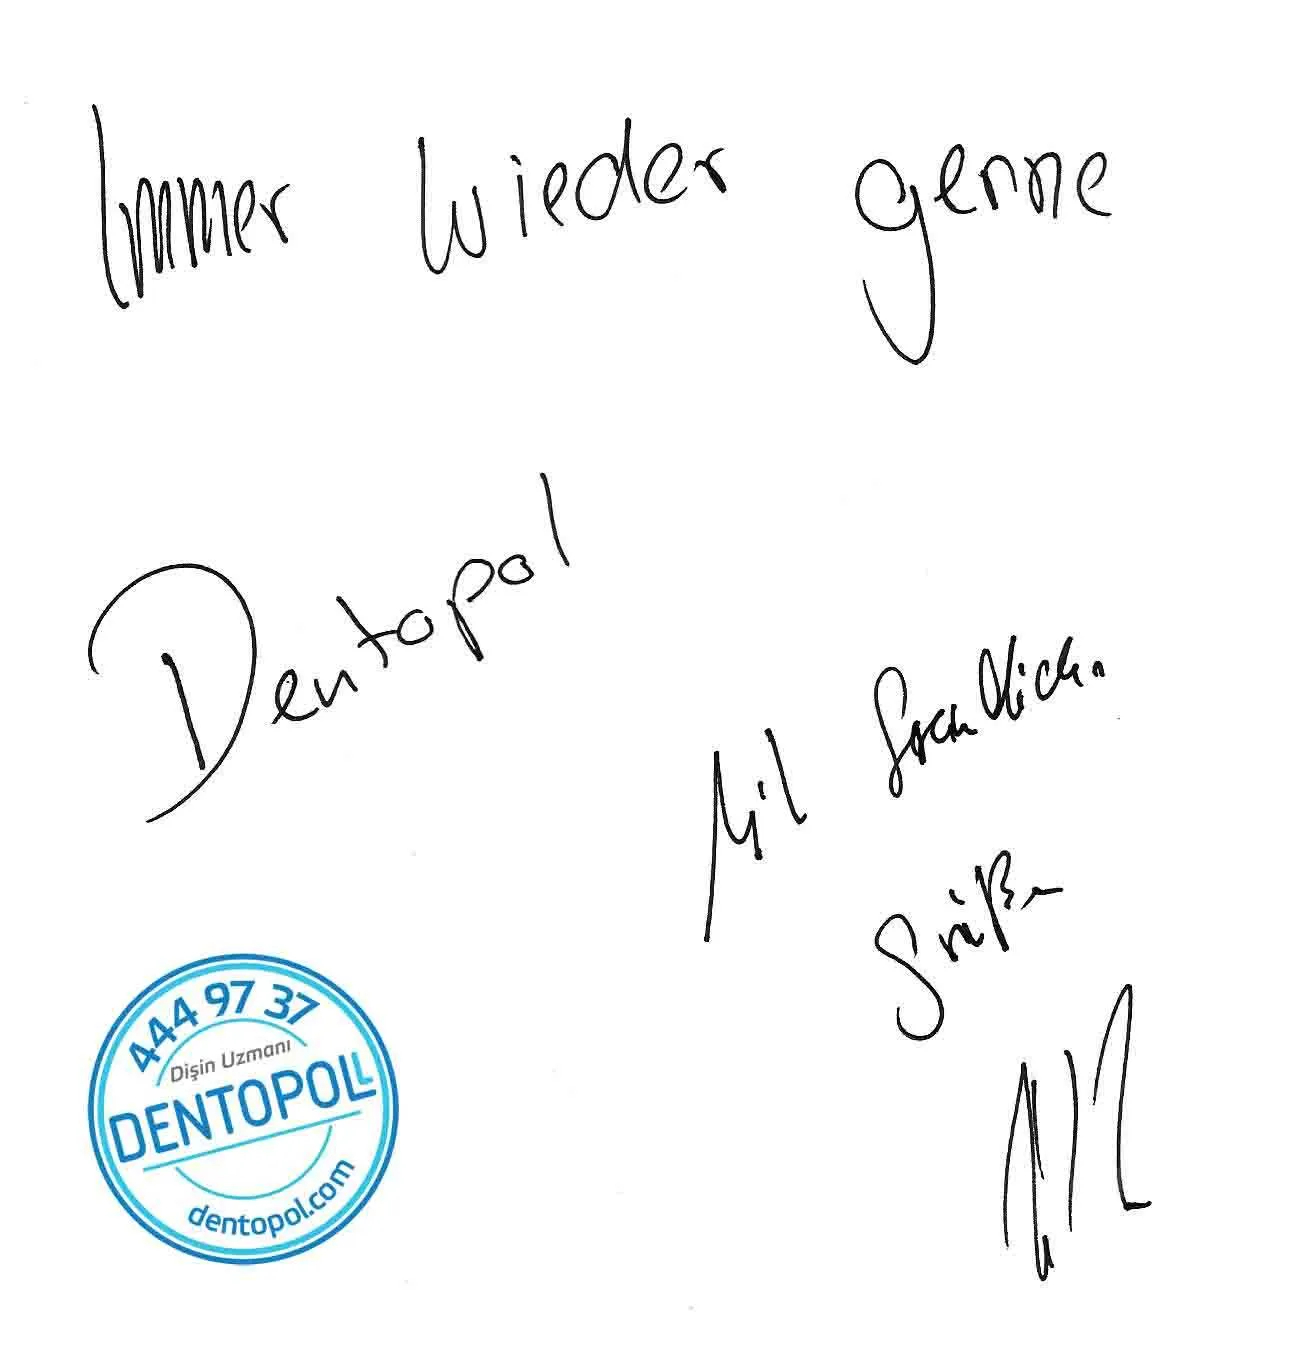 Immer wieder gerne
Dentopol
Mit freundlichen
Grüßen
444 97 37
Dişin Uzmanı
DENTOPOLL
dentopol.com